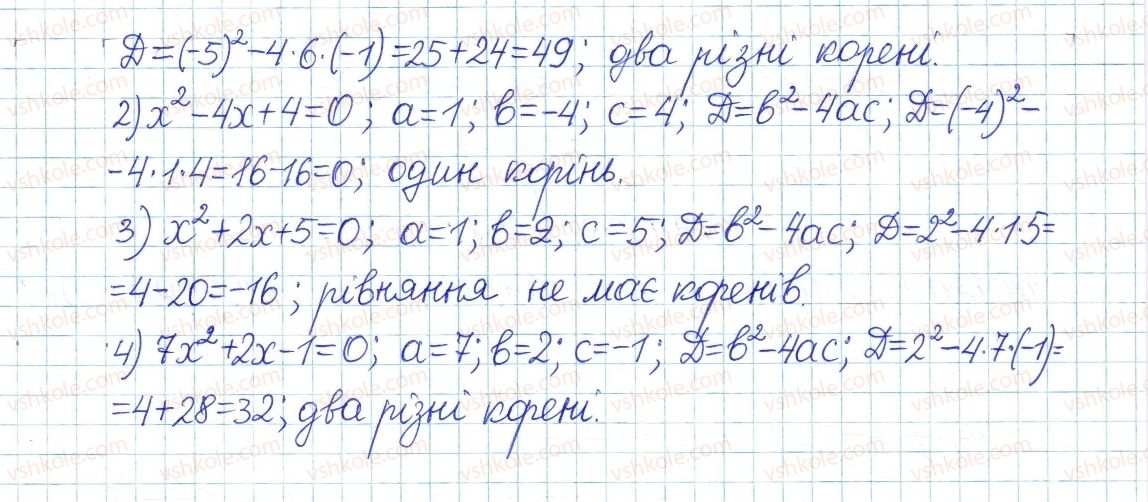 Д=(-5)²-4·6·(-1)=25+24=49; два різні корені.
2) x²-4x+4=0; a=1; в=-4; c=4; Д=в²-4ac; Д=(-4)²-
-4·1·4=16-16=0; один корінь.
3) x²+2x+5=0; a=1; в=2; c=5; Д=в²-4ac; Д=2²-4·1·5=
=4-20=-16; рівняння не має коренів.
4) 7x²+2x-1=0; a=7; в=2; c=-1; Д=в²-4ac; Д=2²-4·7·(-1)=
=4+28=32; два різні корені.
vshkole.com